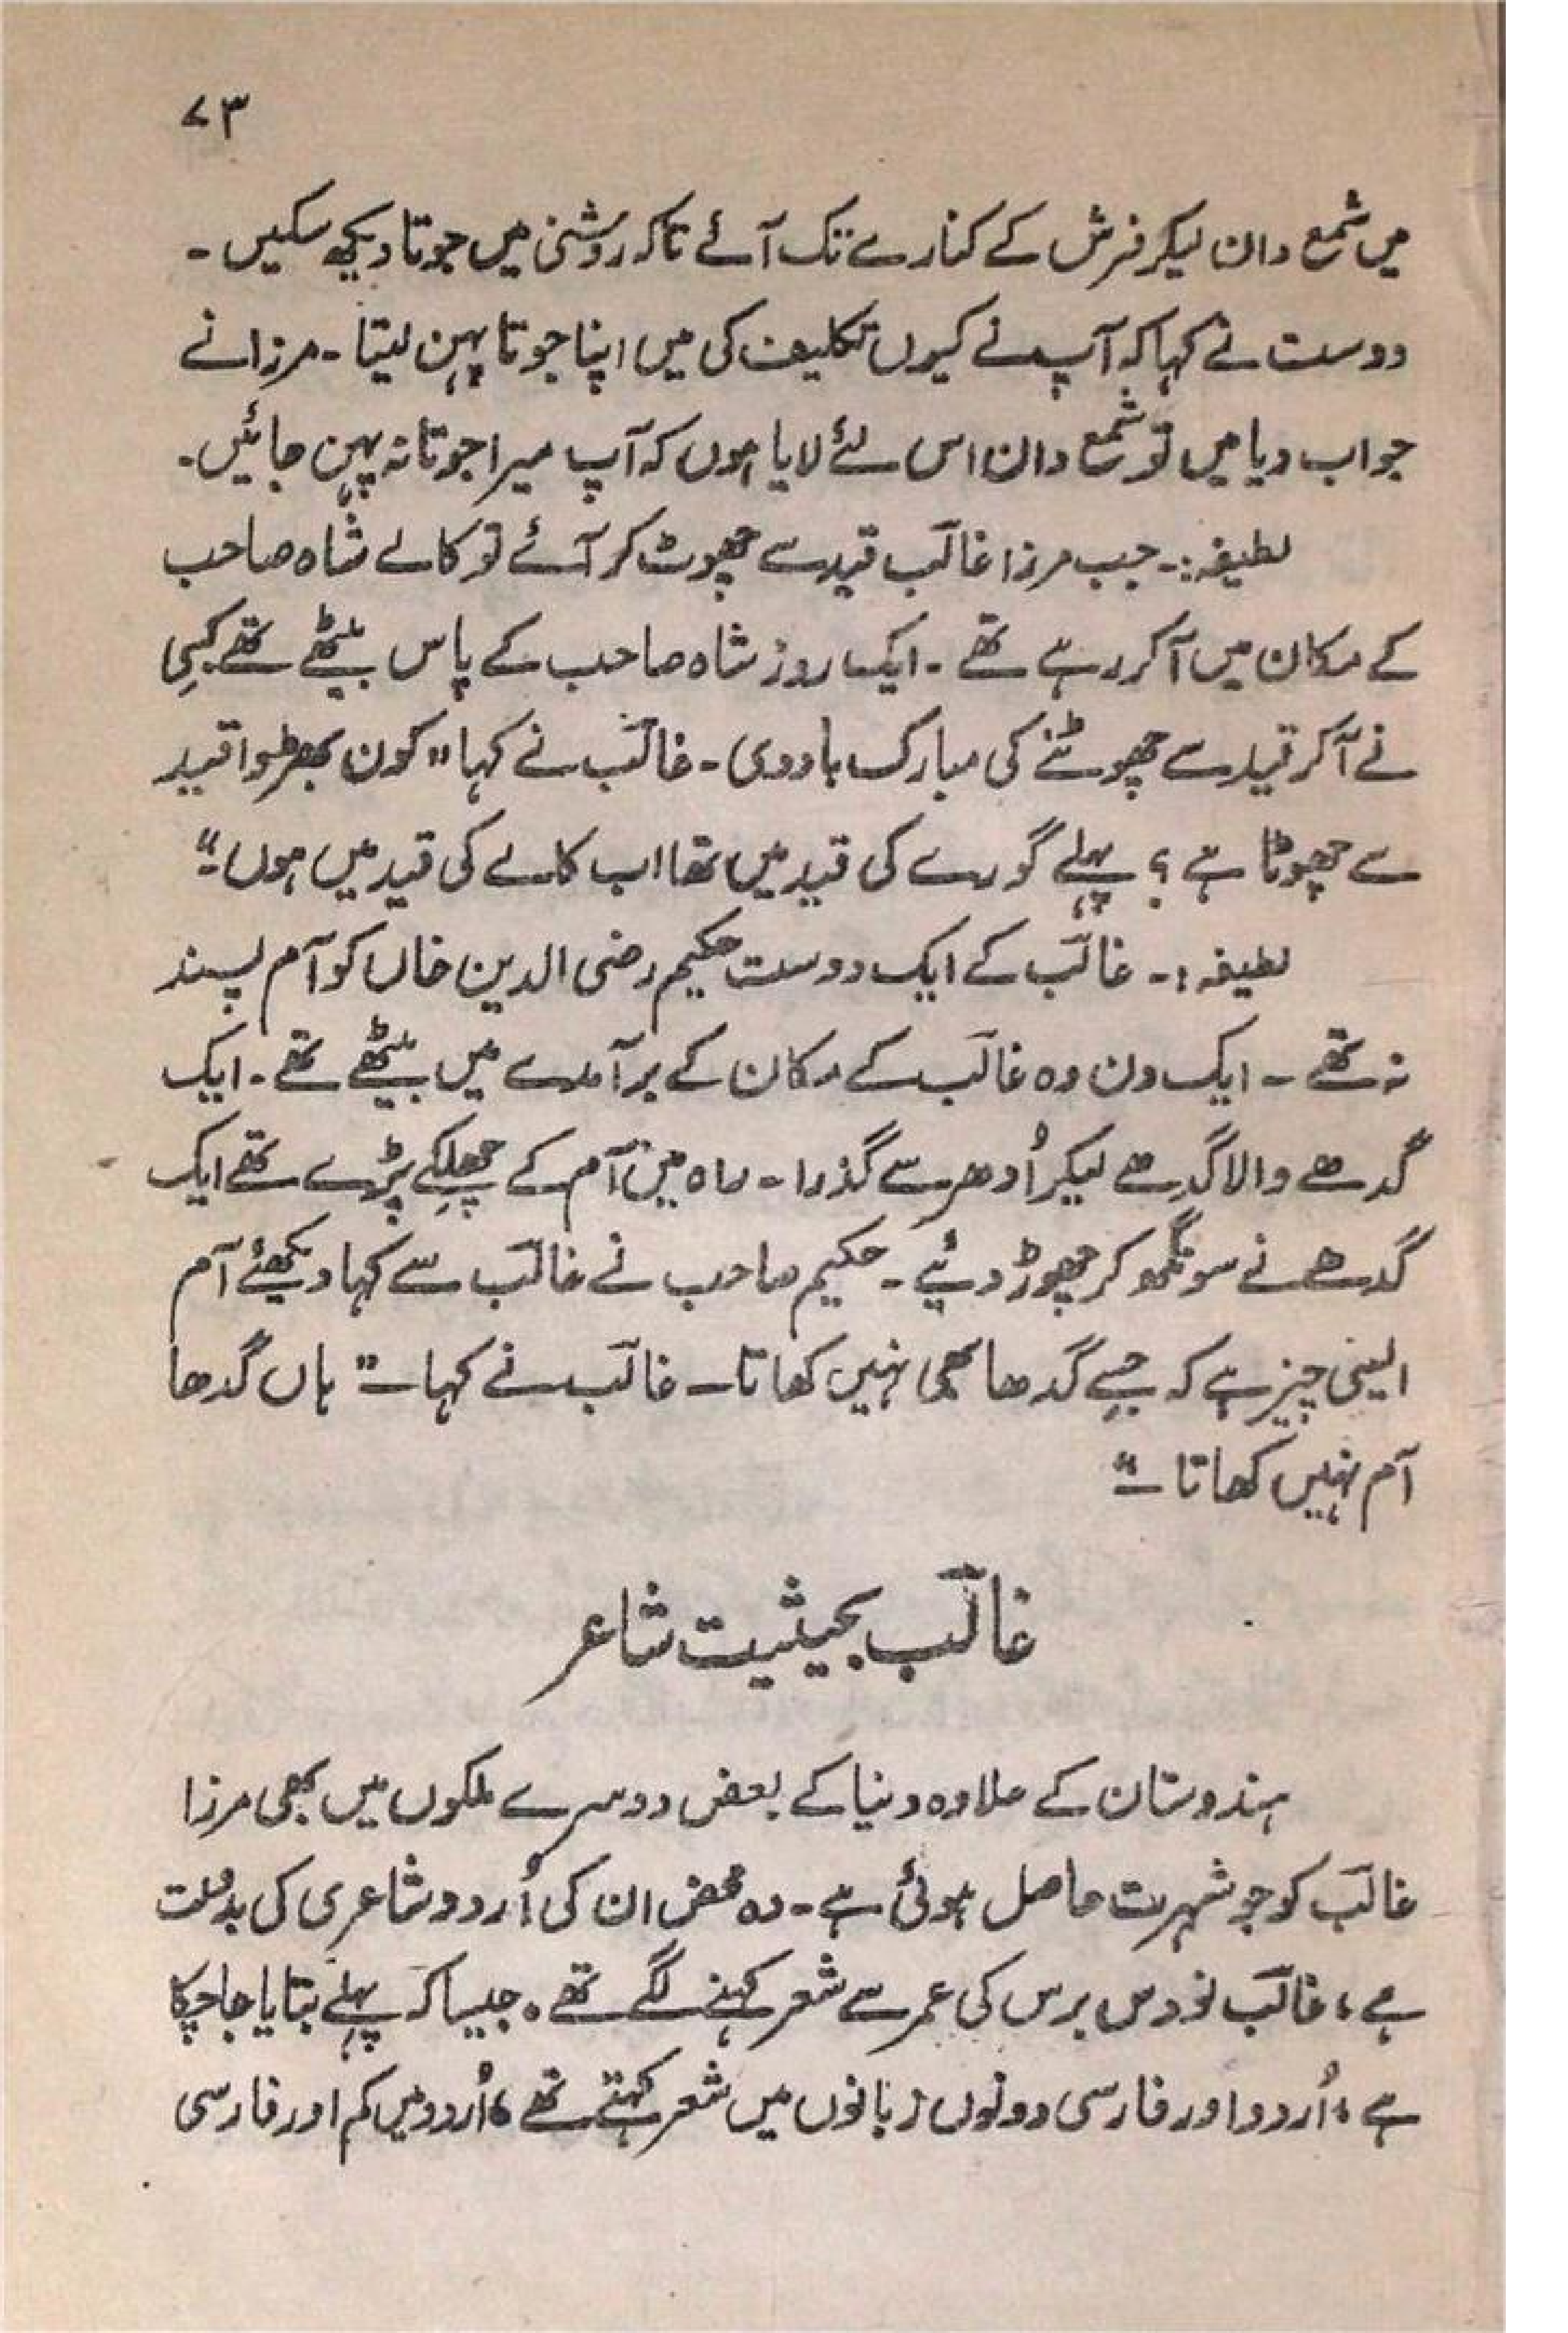 ۷۳
میں شمع دان لیکر فرش کے کنارے تک آئے تاکہ روشنی میں جوتا دیکھ سکیں ۔
دوست نے کہا کہ آپ نے کیوں تکلیف کی میں اپنا جوتا پہن لیتا ۔ مرزا نے
جواب دیا میں تو شمع دان اس لئے لایا ہوں کہ آپ میرا جوتا نہ پہن جائیں ۔
لطیفہ :۔ جب مرزا غالب قید سے چھوٹ کر آئے تو کالے شاہ صاحب
کے مکان میں آکر رہے تھے ۔ ایک روز شاہ صاحب کے پاس بیٹھے تھے کسی
نے آکر قید سے چھوٹنے کی مبارک باد دی ۔ غالب نے کہا " کون بھڑوا قید
سے چھوٹا ہے ؟ پہلے گورے کی قید میں تھا اب کالے کی قید میں ہوں ۔"
لطیفہ :۔ غالب کے ایک دوست حکیم رضی الدین خاں کو آم پسند
نہ تھے ۔ ایک دن وہ غالب کے مکان کے برآمدے میں بیٹھے تھے ۔ ایک
گدھے والا گدھے لیکر اُدھر سے گذرا ۔ راہ میں آم کے چھلکے پڑے تھے ایک
گدھے نے سونگھ کر چھوڑ دئیے ۔ حکیم صاحب نے غالب سے کہا دیکھئے آم
ایسی چیز ہے کہ جسے گدھا بھی نہیں کھاتا ۔ غالب نے کہا ۔" ہاں گدھا
آم نہیں کھاتا ۔"
غالب بحیثیت شاعر
ہندوستان کے علاوہ دنیا کے بعض دوسرے ملکوں میں بھی مرزا
غالب کو جو شہرت حاصل ہوئی ہے ۔ وہ محض ان کی اُردو شاعری کی بدولت
ہے ، غالب نو دس برس کی عمر سے شعر کہنے لگے تھے ۔ جیسا کہ پہلے بتایا جا چکا
ہے ، اُردو اور فارسی دونوں زبانوں میں شعر کہتے تھے ، اُردو میں کم اور فارسی